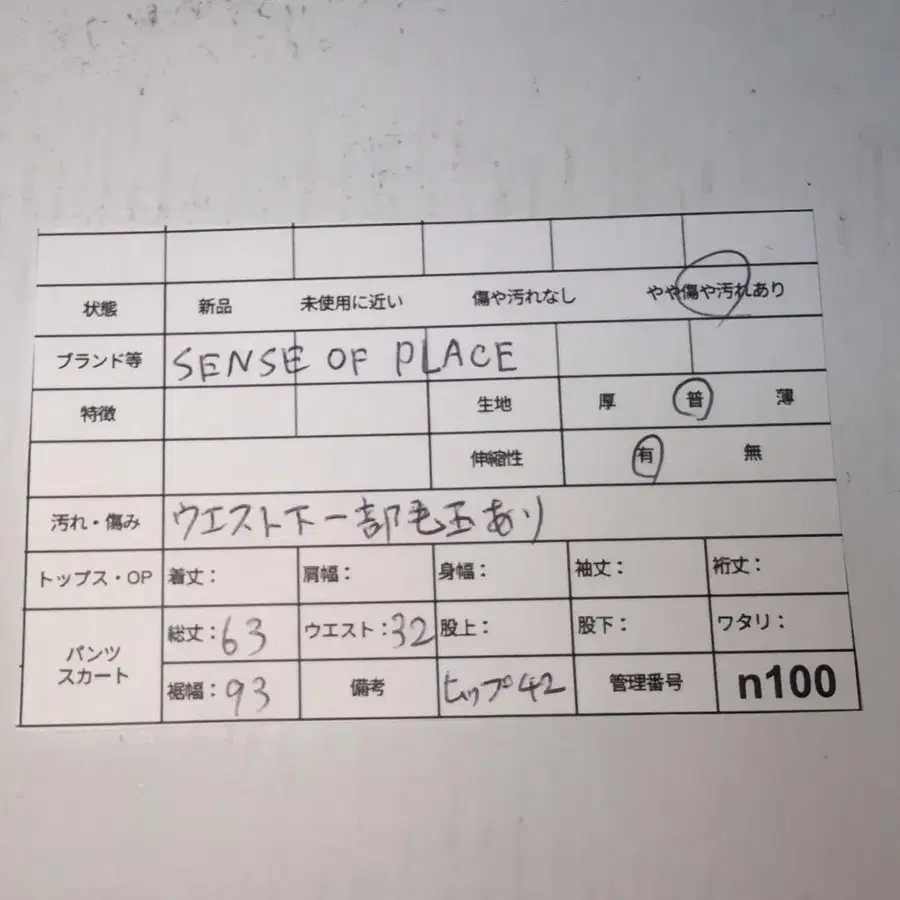 状態 新品 未使用に近い 傷や汚れなし やや傷や汚れあり
ブランド等 SENSE OF PLACE
特徴 生地 厚 普 薄
伸縮性 有 無
汚れ・傷み ウエスト下一部毛玉あり
トップス・OP 着丈： 肩幅： 身幅： 袖丈： 裄丈：
パンツ スカート 総丈：63 ウエスト：32 股上： 股下： ワタリ：
裾幅：93 備考 ヒップ42 管理番号 n100